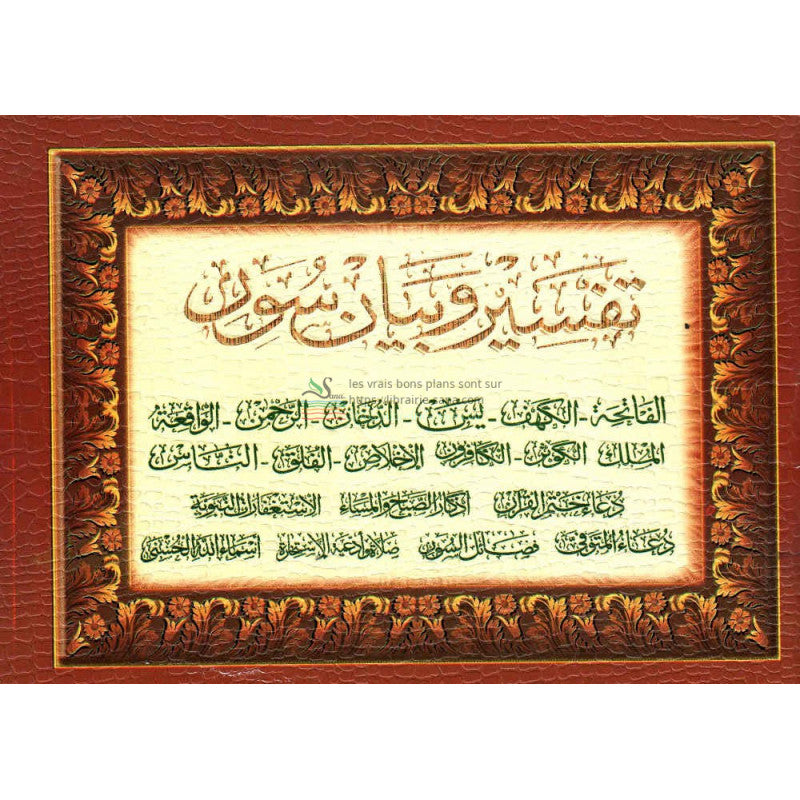 تفسير وبيان سور
les vrais bons plans sont sur
Sana https://librairie.sana.com
الفاتحة - الكهف - يس - الدخان - الرحمن - الواقعة
الملك الكوثر - الكافرون الإخلاص - الفلق - الناس
دعاء ختم القرآن أذكار الصباح والمساء الاستغفارات النبوية
دعاء المتوفي فضائل السور صلاة وأدعية الاستخارة أسماء الله الحسنى